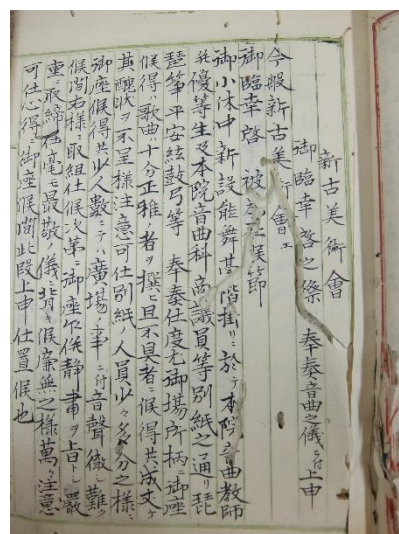 新古美術會
御臨幸啓之條 奉奏音曲之儀ニ付上申
今般新古美術會エ
御臨幸啓 被為在候節
御小休中新設能舞台階掛リニ於テ本院音曲教師
並優等生及本院音曲科 高議員等別紙之通リ琵
琶箏平安絃鼓弓等 奉奏仕度尤御場所柄ニ御座
候得ハ歌曲ハ十分正雅ノ者ヲ撰ヒ且不具者ニ候得共成丈ケ
其醜状ヲ不呈様注意可仕別紙ノ人員少々多分之様ニ
御座候得共少人数ニテハ廣場ノ事ニ付音聲徹シ難ク
候間右様ニ取組仕候次第ニ御座候乍併静粛ヲ旨トシ嚴
重ニ取締在毫モ最敬ノ儀ニ背キ候廉無之様萬々注意
可仕心得ニ御座候間此段上申仕置候也